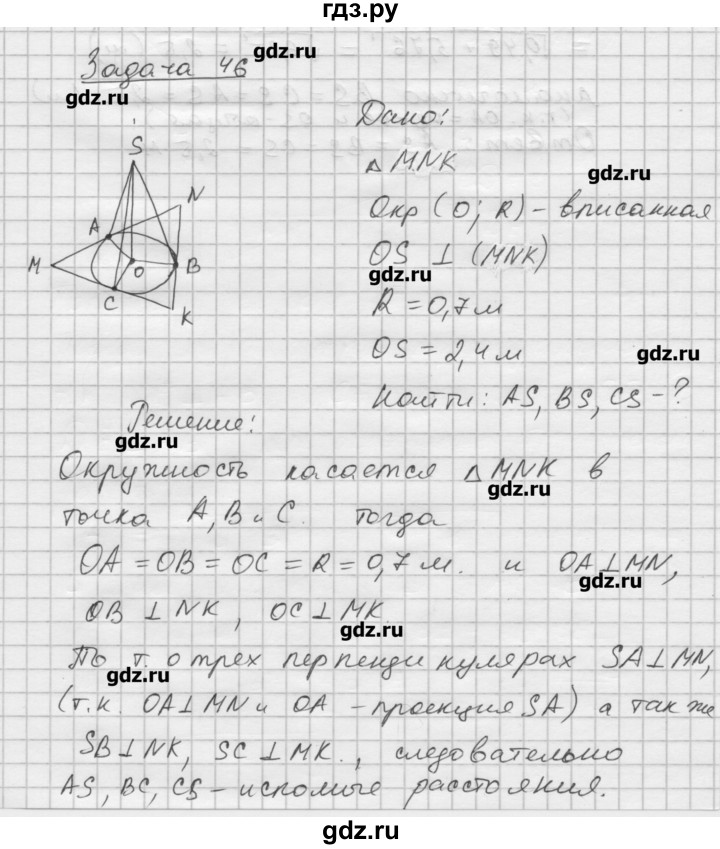 гдз.ру
Задача 46
gdz.ru
gdz.ru
Дано:
△ MNK
gdz.ru
Окр (O; R) - вписанная
OS ⊥ (MNK)
gdz.ru
R = 0,7 м
OS = 2,4 м
gdz.ru
Найти: AS, BS, CS - ?
S
A
N
M
O
B
C
K
Решение:
gdz.ru
Окружность касается △ MNK в
gdz.ru
точка A, B и C. тогда
OA = OB = OC = R = 0,7 м. и OA ⊥ MN,
gdz.ru
OB ⊥ NK, OC ⊥ MK.
gdz.ru
То т. о трех перпендикулярах SA ⊥ MN,
gdz.ru
(т.к. OA ⊥ MN и OA - проекция SA) а так же
SB ⊥ NK, SC ⊥ MK., следовательно
AS, BC, CS - искомые расстояния.
gdz.ru
gdz.ru